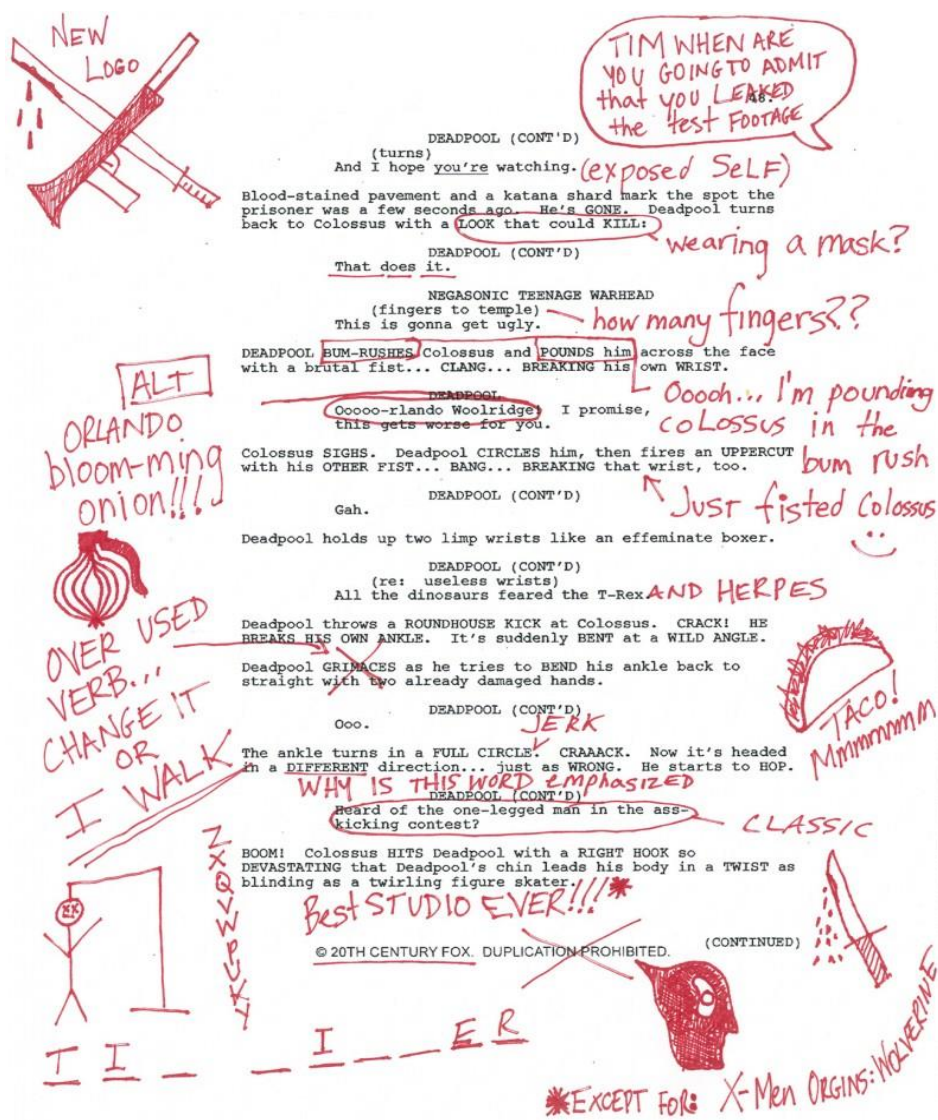 NEW
LOGO
TIM WHEN ARE
YOU GOING TO ADMIT
that you LEAKED
the test FOOTAGE
48.
DEADPOOL (CONT'D)
(turns)
And I hope you're watching. (exposed SeLF)
Blood-stained pavement and a katana shard mark the spot the
prisoner was a few seconds ago. He's GONE. Deadpool turns
back to Colossus with a LOOK that could KILL:
wearing a mask?
DEADPOOL (CONT'D)
That does it.
NEGASONIC TEENAGE WARHEAD
(fingers to temple)
how many fingers??
This is gonna get ugly.
DEADPOOL BUM-RUSHES Colossus and POUNDS him across the face
with a brutal fist... CLANG... BREAKING his own WRIST.
ALT
ORLANDO
bloom-ming
onion!!!
DEADPOOL
Ooooo-rlando Woolridge! I promise,
this gets worse for you.
Ooooh... I'm pounding
coLossus in the
bum rush
Colossus SIGHS. Deadpool CIRCLES him, then fires an UPPERCUT
with his OTHER FIST... BANG... BREAKING that wrist, too.
Just fisted Colossus
DEADPOOL (CONT'D)
Gah.
Deadpool holds up two limp wrists like an effeminate boxer.
DEADPOOL (CONT'D)
(re: useless wrists)
All the dinosaurs feared the T-Rex. AND HERPES
Deadpool throws a ROUNDHOUSE KICK at Colossus. CRACK! HE
BREAKS HIS OWN ANKLE. It's suddenly BENT at a WILD ANGLE.
OVER USED
VERB...
CHANGE IT
OR
I WALK
Deadpool GRIMACES as he tries to BEND his ankle back to
straight with two already damaged hands.
TACO!
Mmmmmmm
DEADPOOL (CONT'D)
Ooo.
JERK
The ankle turns in a FULL CIRCLE. CRAAACK. Now it's headed
in a DIFFERENT direction... just as WRONG. He starts to HOP.
WHY IS THIS WORD emphasized
DEADPOOL (CONT'D)
Heard of the one-legged man in the ass-
kicking contest?
CLASSIC
BOOM! Colossus HITS Deadpool with a RIGHT HOOK so
DEVASTATING that Deadpool's chin leads his body in a TWIST as
blinding as a twirling figure skater.
Best STUDIO EVER!!!*
(CONTINUED)
© 20TH CENTURY FOX. DUPLICATION PROHIBITED.
T I _ _ I _ _ E R
*EXCEPT FOR: X-Men ORGINS: WOLVERINE